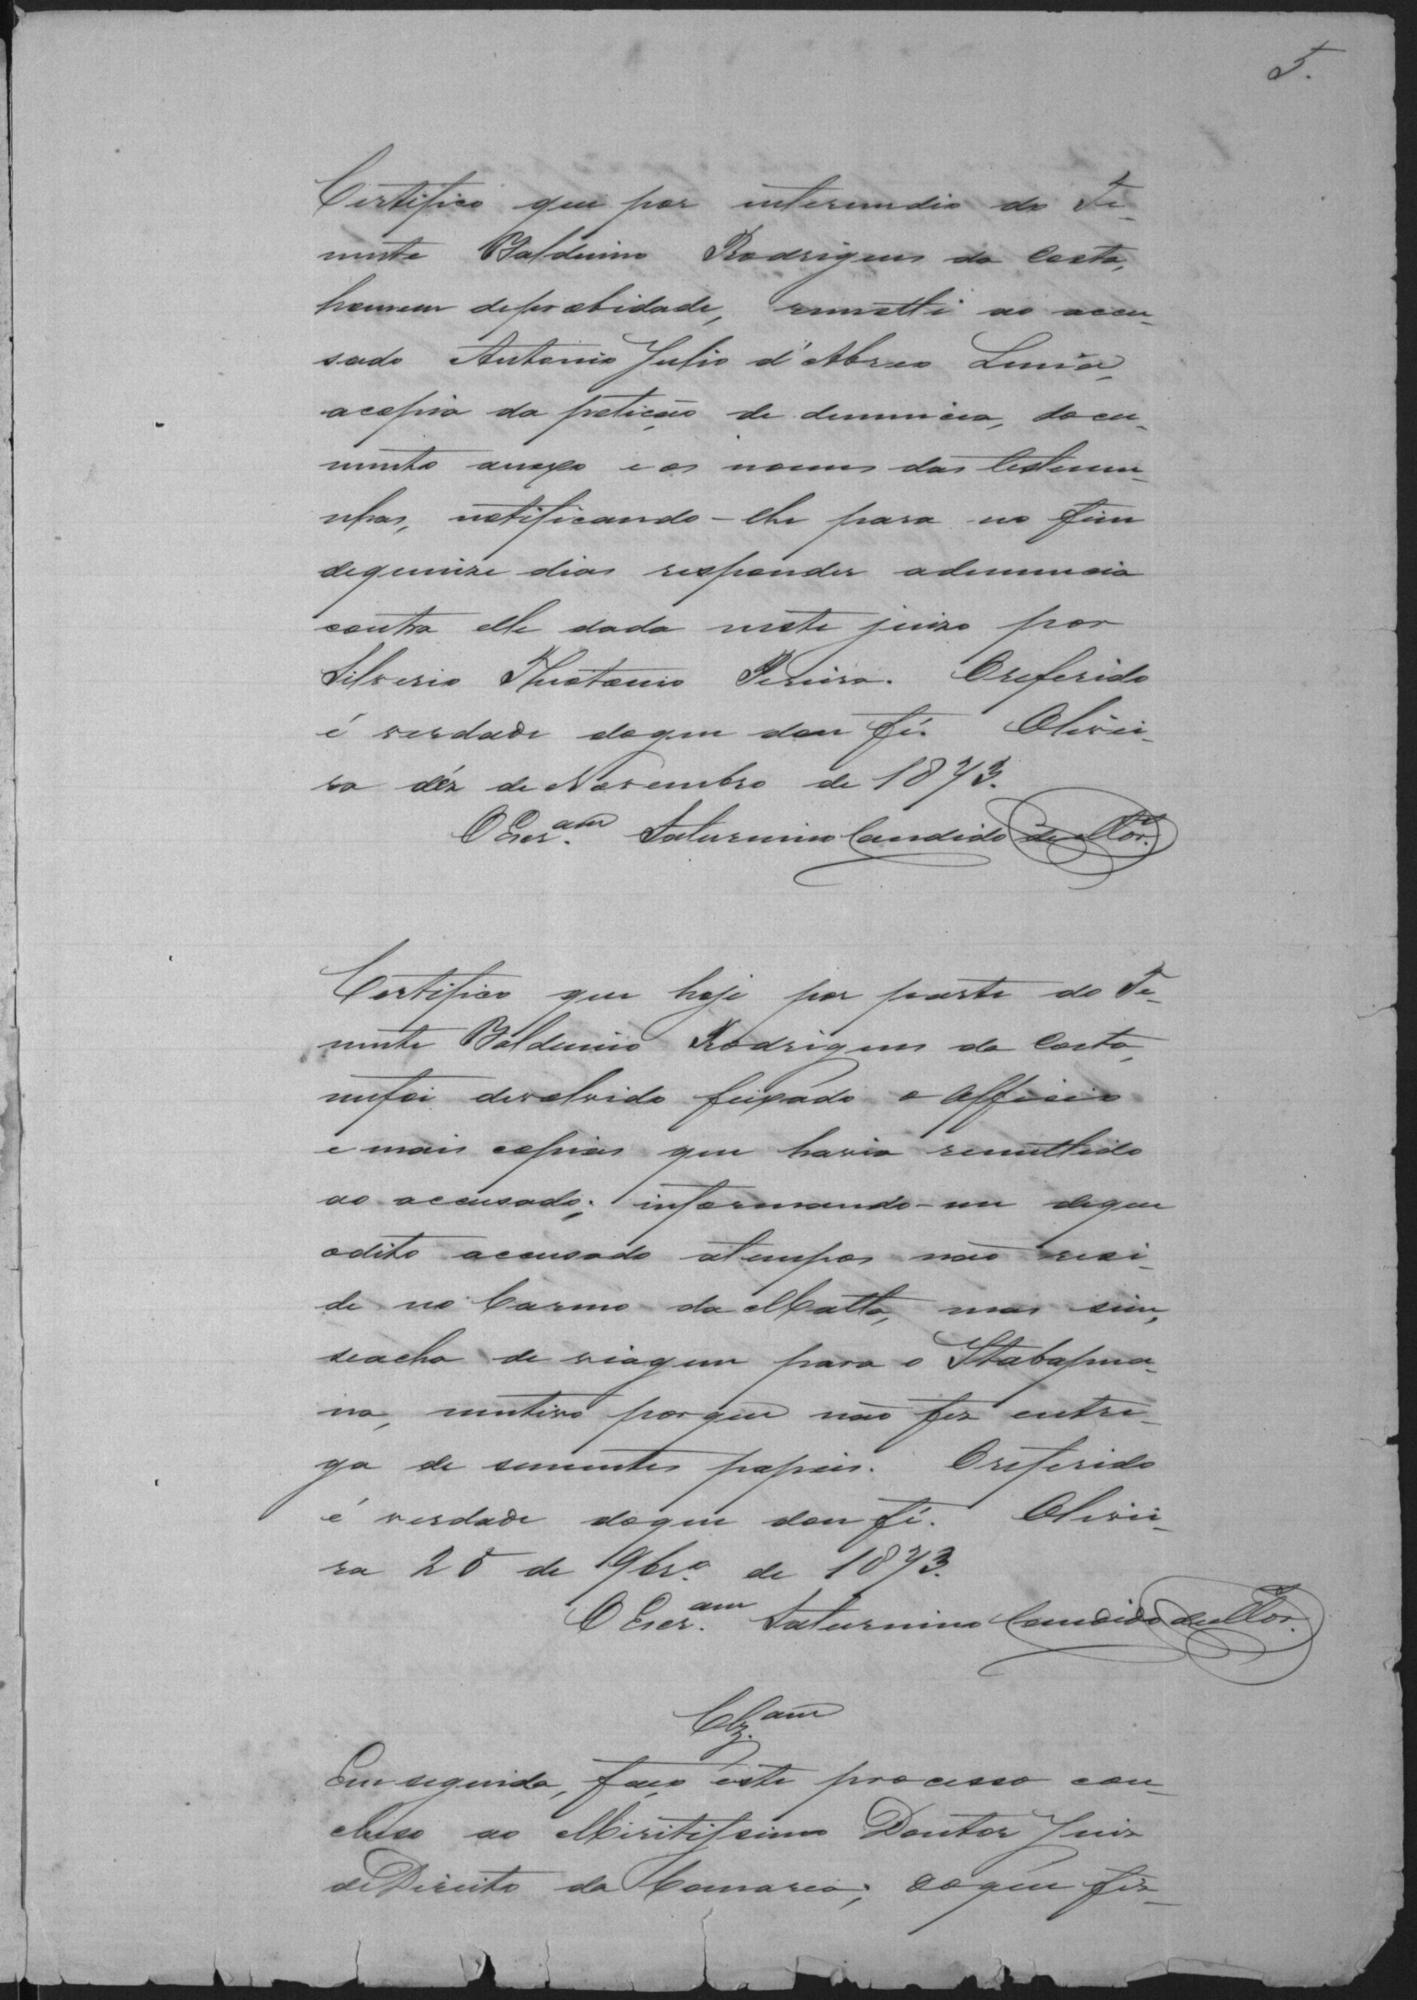 5.
Certifico que por intermedio do Te-
nente Balduino Rodrigues da Costa,
homem deprobidade, remetti ao accu-
sado Antonio Julio d'Abreo Lima,
acopia da petição de denuncia, docu-
mento anexo e os nomes das testemu-
nhas, notificando-lhe para no fim
dequinze dias responder adenuncia
contra elle dada neste juizo por
Silverio Pereira. Oreferido
é verdade doque dou fé. Olivei-
ra déz de Novembro de 1873.
O Escr.am Saturnino Candido de
Certifico que hoje por parte do Te-
nente Balduino Rodrigues da Costa,
mefoi devolvido feixado o Officio
e mais copias que havia remettido
ao accusado; informando-me deque
odito accusado atempos não resi-
de no Carmo da Matta, mas sim,
seacha de viagem para o Itabapua-
na, mutivo porque não fez entre-
ga de sementes papeis. Oreferido
é verdade doque dou fé. Olivei-
ra 25 de 9br.o de 1873.
O Escr.am Saturnino Candido de
Clz.am
Em seguida, faço este processo con-
cluso ao Miritissimo Doutor Juiz
de Direito da Comarca; doque fiz